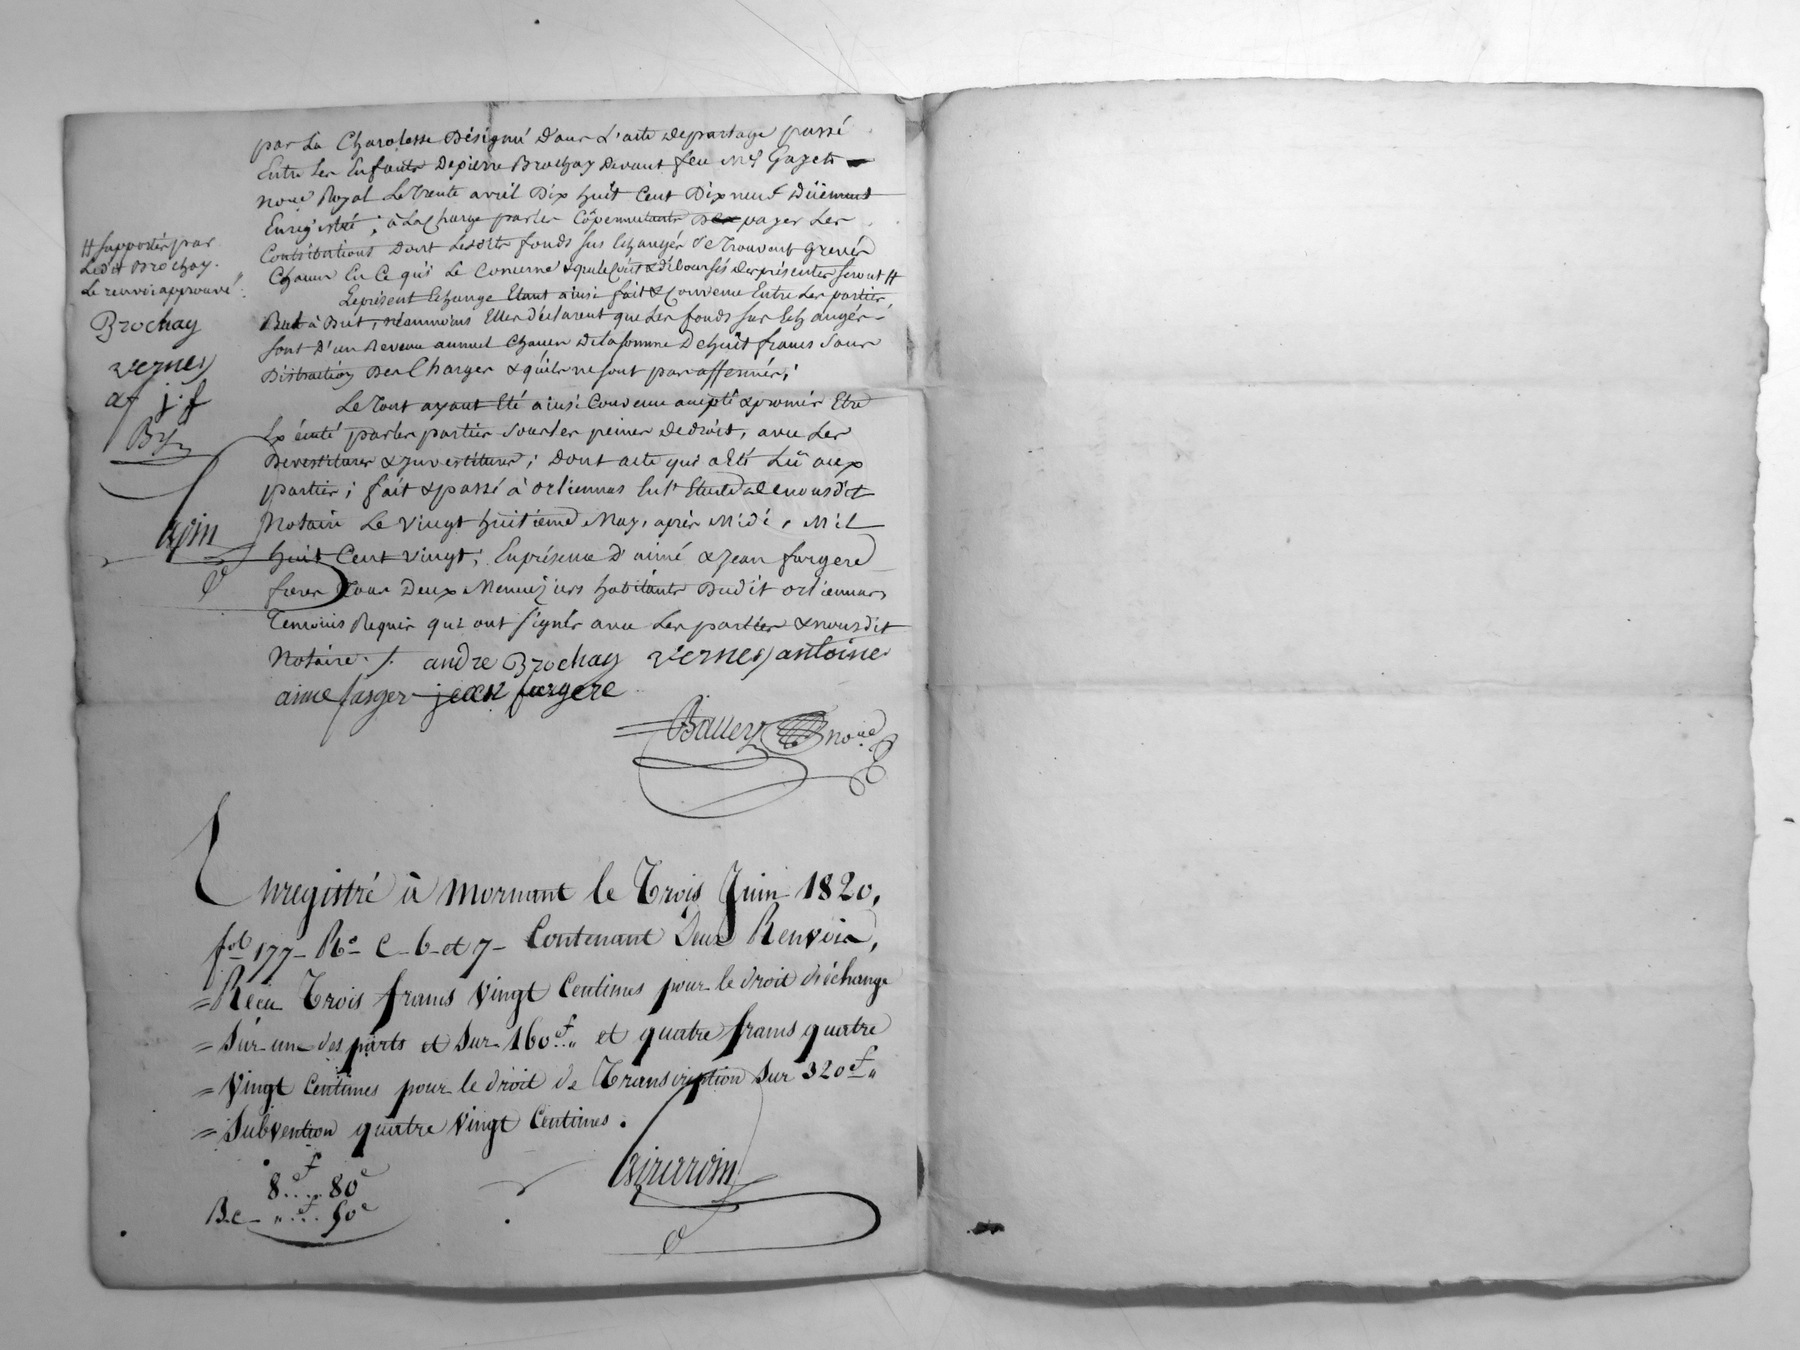 par La Charolesse Désigné Dans L'acte departage passé
Entre Les Enfants Depierre Brochay Devant feu Me Gayet
nore Royal Le Trente avril Dix huit Cent Dix neuf Dûement
Enregistré, à La Charge par les Copermutants De payer Les
Contributions Dont Lesdits fonds sus Echangés se Trouvent Grevés
Chacun En Ce qui Le Concerne & que le Coût & débours des présentes seront #
# supportés par
Ledit Brochay.
Le renvoi approuvé
Brochay
verney
af j.f
By
Leprésent Echange Etant ainsi fait & Convenu Entre Les parties,
But à But, néanmoins Elles déclarent que Les fonds sus Echangés
sont D'un Revenu annuel Chacun De la somme De huit francs Sans
Distraction Des Charges & qu'ils ne sont pas affermés;
Le Tout ayant Eté ainsi Convenu accepté & promis Etre
Exécuté par les parties Sous les peines de droit, avec Les
Devestitures & Investitures; Dont acte qui a Eté Lû aux
parties; fait & passé à orliennas En l'Etude de nousdit
Notaire Le vingt huitieme May, après Midi, Mil
huit Cent vingt, En présence d'aimé & Jean fargere
freres Tous Deux Menuiziers habitants Dudit orliennas
Temoins Requis qui ont signés avec Les parties & nousdit
Notaire ./. andre Brochay verney antoine
aime farger jean fargere
Balley nore
Enregistré à Mornant le Trois Juin 1820,
fol 177 Ro C 6 et 7 Contenant Deux Renvois,
= Reçu Trois francs Vingt Centimes pour le droit d'échange
= Sur une des parts et Sur 160f.. et quatre francs quatre
= Vingt Centimes pour le droit de Transcription Sur 320f..
= Subvention quatre Vingt Centimes.
8f....80c
B.c „f...50c
Girardin